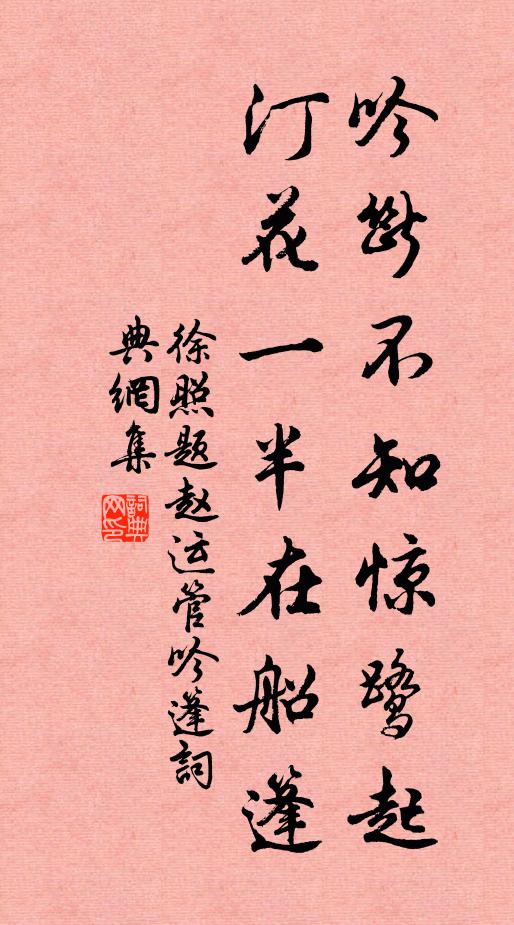 吟断不知惊鷺起
汀花一半在船蓬
徐照题赵运管吟蓬詞
典網集
詞典网印